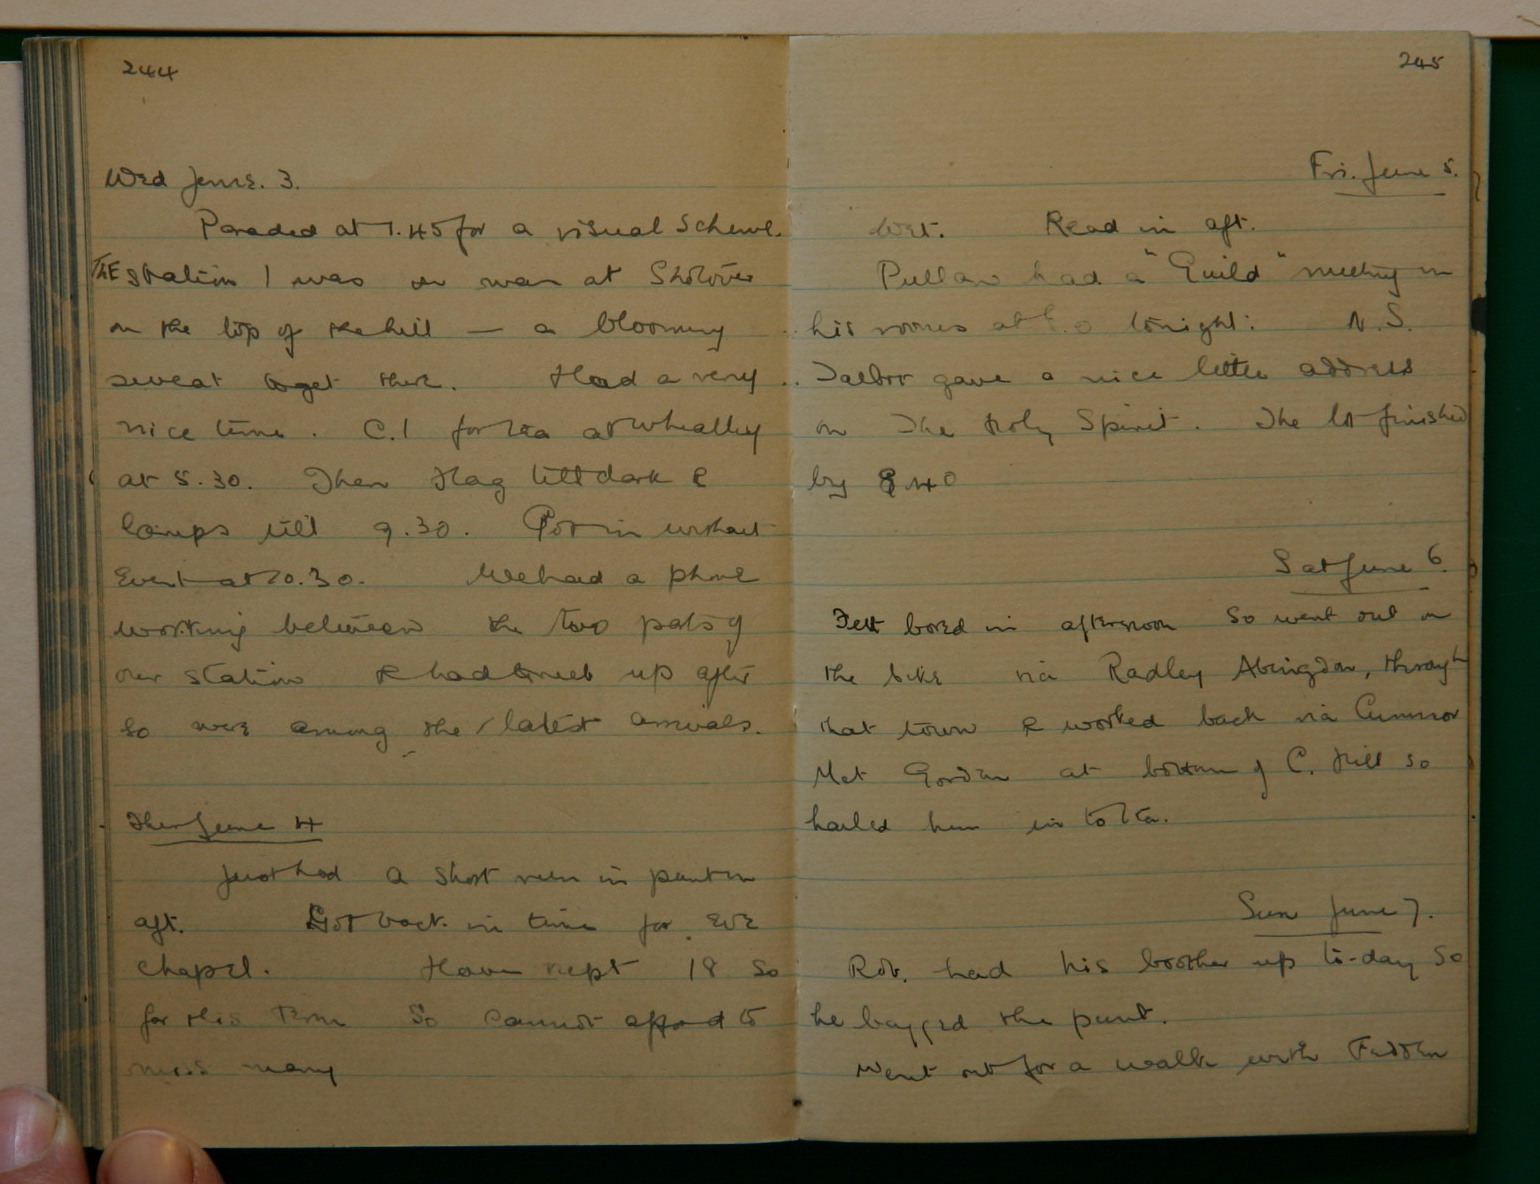 244
Wed June. 3.
Paraded at 1.45 for a visual scheme.
The station I was on was at Shotover
on the top of the hill — a blooming
sweat to get there. Had a very
nice time. C.I for tea at Wheatley
at 5.30. Then Flag till dark &
lamps till 9.30. Got in without
Event at 10.30. We had a phone
working between the two parts of
our station & had to reel up after
so were among the latest arrivals.
Thur June 4
Just had a short run in punt in
aft. Got back in time for Eve
chapel. Have kept 18 so
for this Term so cannot afford to
miss many
245
Fri. June 5.
Wet. Read in aft.
Pullan had a "Guild" meeting in
his rooms at tonight: N.S.
Talbot gave a nice little address
on The Holy Spirit. The lot finished
by 9.40
Sat June 6.
Felt bored in afternoon so went out on
the bike via Radley Abingdon, through
that town & worked back via Cumnor
Met Gordon at bottom of C. Hill so
hailed him in to tea.
Sun June 7.
Rob. had his brother up to-day so
he bagged the punt.
Went out for a walk with